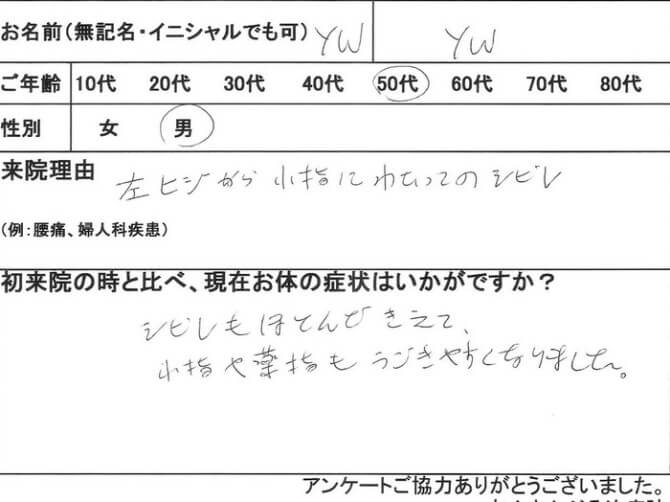 お名前（無記名・イニシャルでも可） YW YW
ご年齢 10代 20代 30代 40代 50代 60代 70代 80代
性別 女 男
来院理由
左ヒジから小指にわたってのシビレ
（例：腰痛、婦人科疾患）
初来院の時と比べ、現在お体の症状はいかがですか？
シビレもほとんどきえて、
小指や薬指もうごきやすくなりました。
アンケートご協力ありがとうございました。